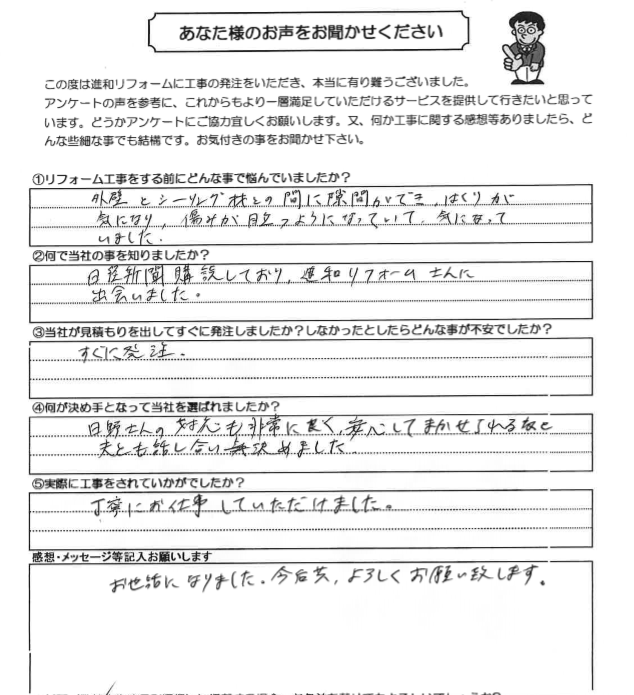 あなた様のお声をお聞かせください
この度は進和リフォームに工事の発注をいただき、本当に有り難うございました。
アンケートの声を参考に、これからもより一層満足していただけるサービスを提供して行きたいと思って
います。どうかアンケートにご協力宜しくお願いします。又、何か工事に関する感想等ありましたら、ど
んな些細な事でも結構です。お気付きの事をお聞かせ下さい。
①リフォーム工事をする前にどんな事で悩んでいましたか？
外壁とシーリング材との間に隙間ができ、はくりが
気になり、傷みが目立つようになっていて、気になって
いました。
②何で当社の事を知りましたか？
新聞購読しており、進和リフォームさんに
出会いました。
③当社が見積もりを出してすぐに発注しましたか？しなかったとしたらどんな事が不安でしたか？
すぐに発注。
④何が決め手となって当社を選ばれましたか？
日野さんの対応も非常に良く、安心してまかせられる
夫とも話し合い決めました
⑤実際に工事をされていかがでしたか？
丁寧にお仕事していただけました。
感想・メッセージ等記入お願いします
お世話になりました。今后共、よろしくお願い致します。